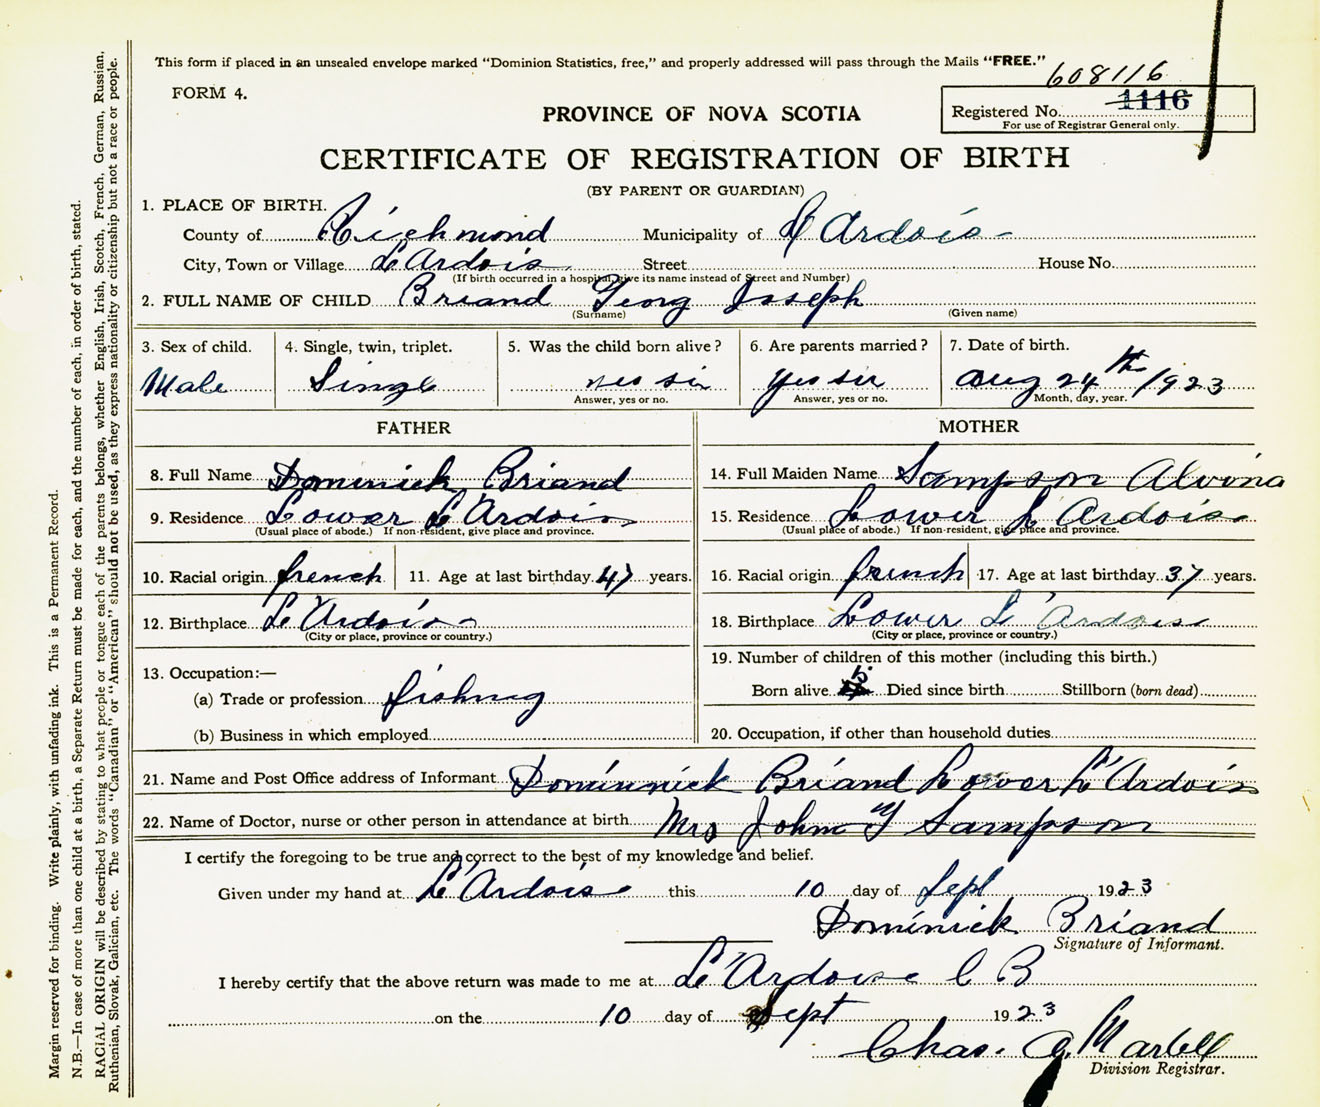 This form if placed in an unsealed envelope marked "Dominion Statistics, free," and properly addressed will pass through the Mails "FREE."
608116
FORM 4.
Registered No. 1116
For use of Registrar General only.
PROVINCE OF NOVA SCOTIA
CERTIFICATE OF REGISTRATION OF BIRTH
(BY PARENT OR GUARDIAN)
1. PLACE OF BIRTH.
County of Richmond Municipality of L Ardois
City, Town or Village L'Ardois Street House No.
(If birth occurred in a hospital, give its name instead of Street and Number)
2. FULL NAME OF CHILD Briand Georg Joseph
(Surname) (Given name)
3. Sex of child. 4. Single, twin, triplet. 5. Was the child born alive? 6. Are parents married? 7. Date of birth.
Male Single yes sir yes sir Aug 24th 1923
Answer, yes or no. Answer, yes or no. Month, day, year.
FATHER MOTHER
8. Full Name Dominick Briand 14. Full Maiden Name Sampson Alvina
9. Residence Lower L'Ardois 15. Residence Lower L'Ardoise
(Usual place of abode.) If non-resident, give place and province. (Usual place of abode.) If non-resident, give place and province.
10. Racial origin french 11. Age at last birthday 47 years. 16. Racial origin french 17. Age at last birthday 37 years.
12. Birthplace L'Ardois 18. Birthplace Lower L'Ardoise
(City or place, province or country.) (City or place, province or country.)
13. Occupation:— 19. Number of children of this mother (including this birth.)
(a) Trade or profession fishing Born alive 5 Died since birth Stillborn (born dead)
(b) Business in which employed 20. Occupation, if other than household duties
21. Name and Post Office address of Informant Dominnick Briand Lower L'Ardois
22. Name of Doctor, nurse or other person in attendance at birth Mrs John Y Sampson
I certify the foregoing to be true and correct to the best of my knowledge and belief.
Given under my hand at L'Ardois this 10 day of Sept 1923
Dominick Briand
Signature of Informant.
I hereby certify that the above return was made to me at L'Ardoise C B
on the 10 day of Sept 1923
Chas. G. Martell
Division Registrar.
Margin reserved for binding. Write plainly, with unfading ink. This is a Permanent Record.
N.B.—In case of more than one child at a birth, a Separate Return must be made for each, and the number of each, in order of birth, stated.
RACIAL ORIGIN will be described by stating to what people or tongue each of the parents belongs, whether English, Irish, Scotch, French, German, Russian,
Ruthenian, Slovak, Galician, etc. The words "Canadian," or "American" should not be used, as they express nationality or citizenship but not a race or people.